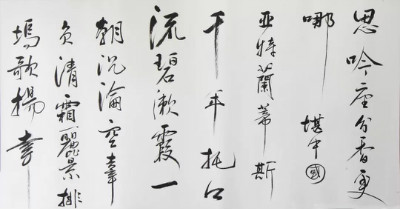 思吟座分香更
哪 堪中國
亚特蘭蒂斯
千年托江
流碧漱霞一
朝沉淪空牽
負清霜麗景排
塢歌揚幸